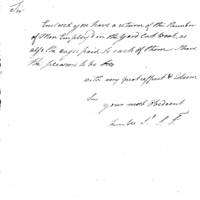 Sir
Enclosed you have a return of the Number
of Men Employ'd in the Yard Each Week, as
also the wages paid to each of them I have
the pleasure to be
with very great respect & Esteem
Sir
your most Obedient